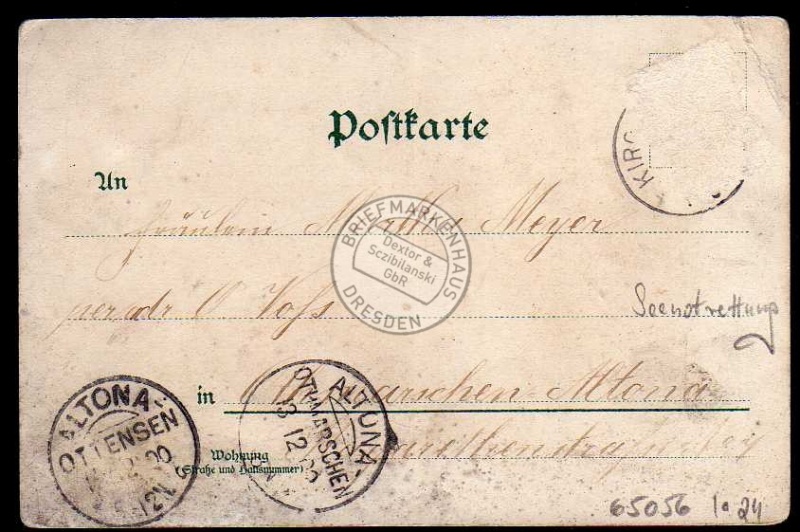 Postkarte
KIRC
An
Fräulein Martha Meyer
per adr O Voss
BRIEFMARKENHAUS
Dextor &
Sczibilanski
GbR
DRESDEN
Seenotrettung
in Othmarschen Altona
ALTONA-
OTTENSEN
ALTONA-
OTHMARSCHEN
12
Wohnung
(Straße und Hausnummer)
65056 1a 24